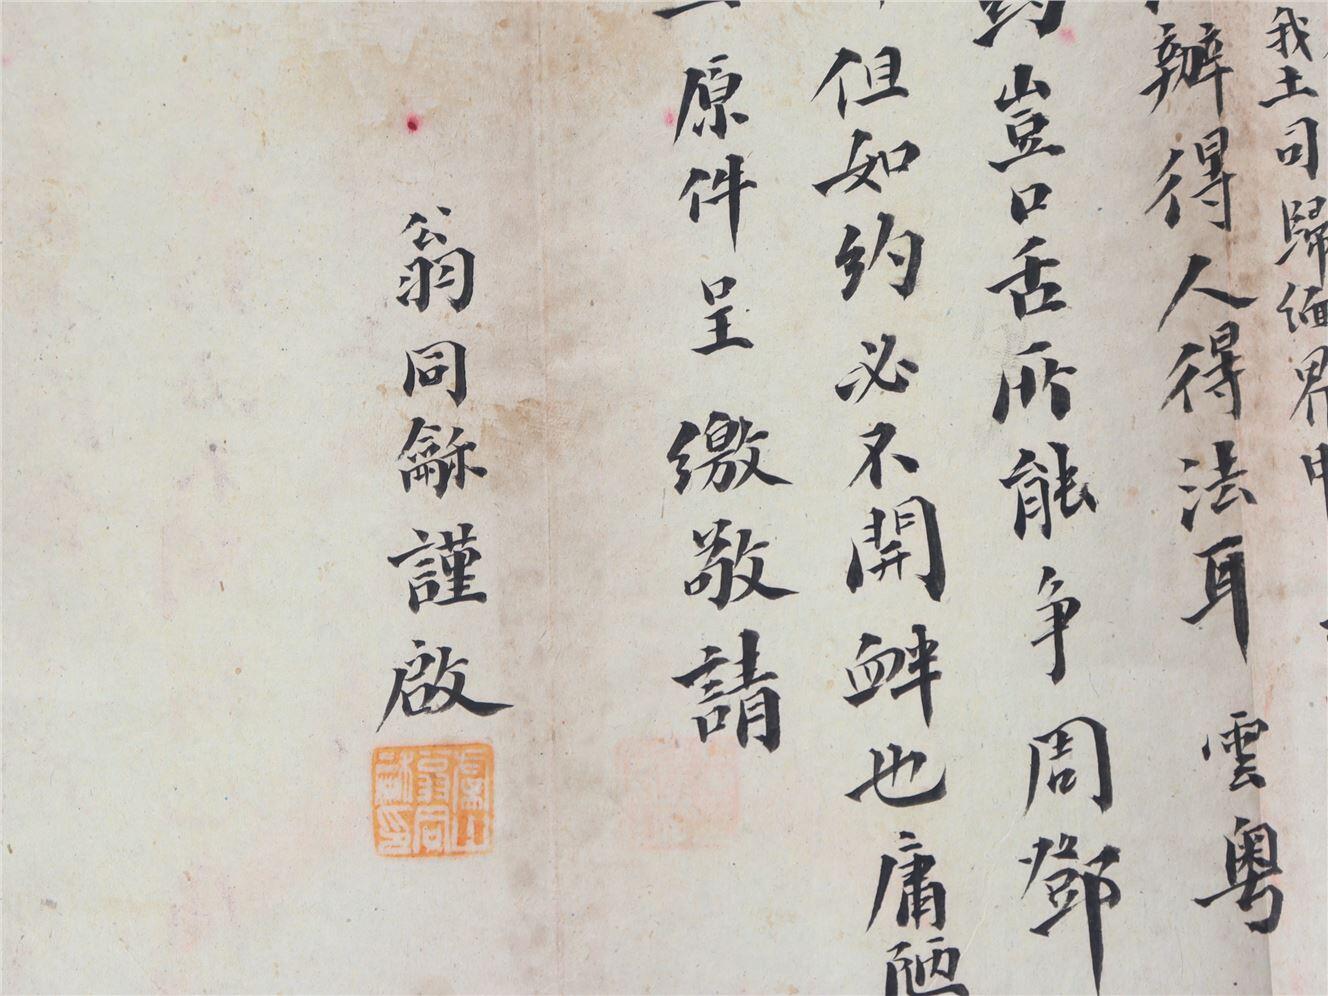 我土司歸緬界
辦得人得法耳 雲粵
豈口舌所能爭 周鄧
但如約必不開衅也 庸陋
原件呈 繳敬請
翁同龢謹啟